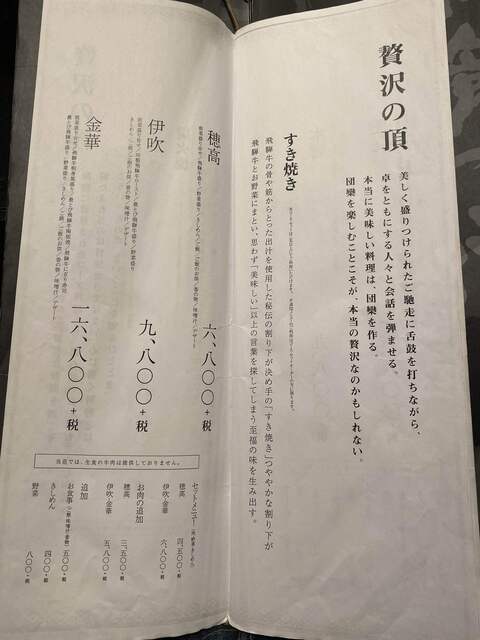 贅沢の頂
美しく盛りつけられたご馳走に舌鼓を打ちながら、
卓をともにする人々と会話を弾ませる。
本当に美味しい料理は、団欒を作る。
団欒を楽しむことこそが、本当の贅沢なのかもしれない。
すき焼き
飛騨牛の骨や筋からとった出汁を使用した秘伝の割り下が決め手の「すき焼き」つややかな割り下が
飛騨牛とお野菜にまとい、思わず「美味しい」以上の言葉を探してしまう至福の味を生み出す。
穂高
六、八〇〇+税
伊吹
九、八〇〇+税
金華
一六、八〇〇+税
当店では、生食の牛肉は提供しておりません。
セットメニュー
穂高 四、五〇〇+税
伊吹・金華 六、八〇〇+税
お肉の追加
穂高 三、五〇〇+税
伊吹・金華 五、八〇〇+税
追加
お食事 五〇〇+税
きしめん 四〇〇+税
野菜 八〇〇+税